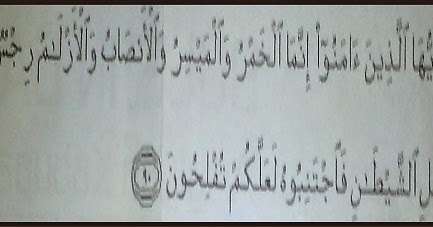 يُّهَا ٱلَّذِينَ ءَامَنُوٓا۟ إِنَّمَا ٱلْخَمْرُ وَٱلْمَيْسِرُ وَٱلْأَنصَابُ وَٱلْأَزْلَٰمُ رِجْسٌ
لِ ٱلشَّيْطَٰنِ فَٱجْتَنِبُوهُ لَعَلَّكُمْ تُفْلِحُونَ ٩٠